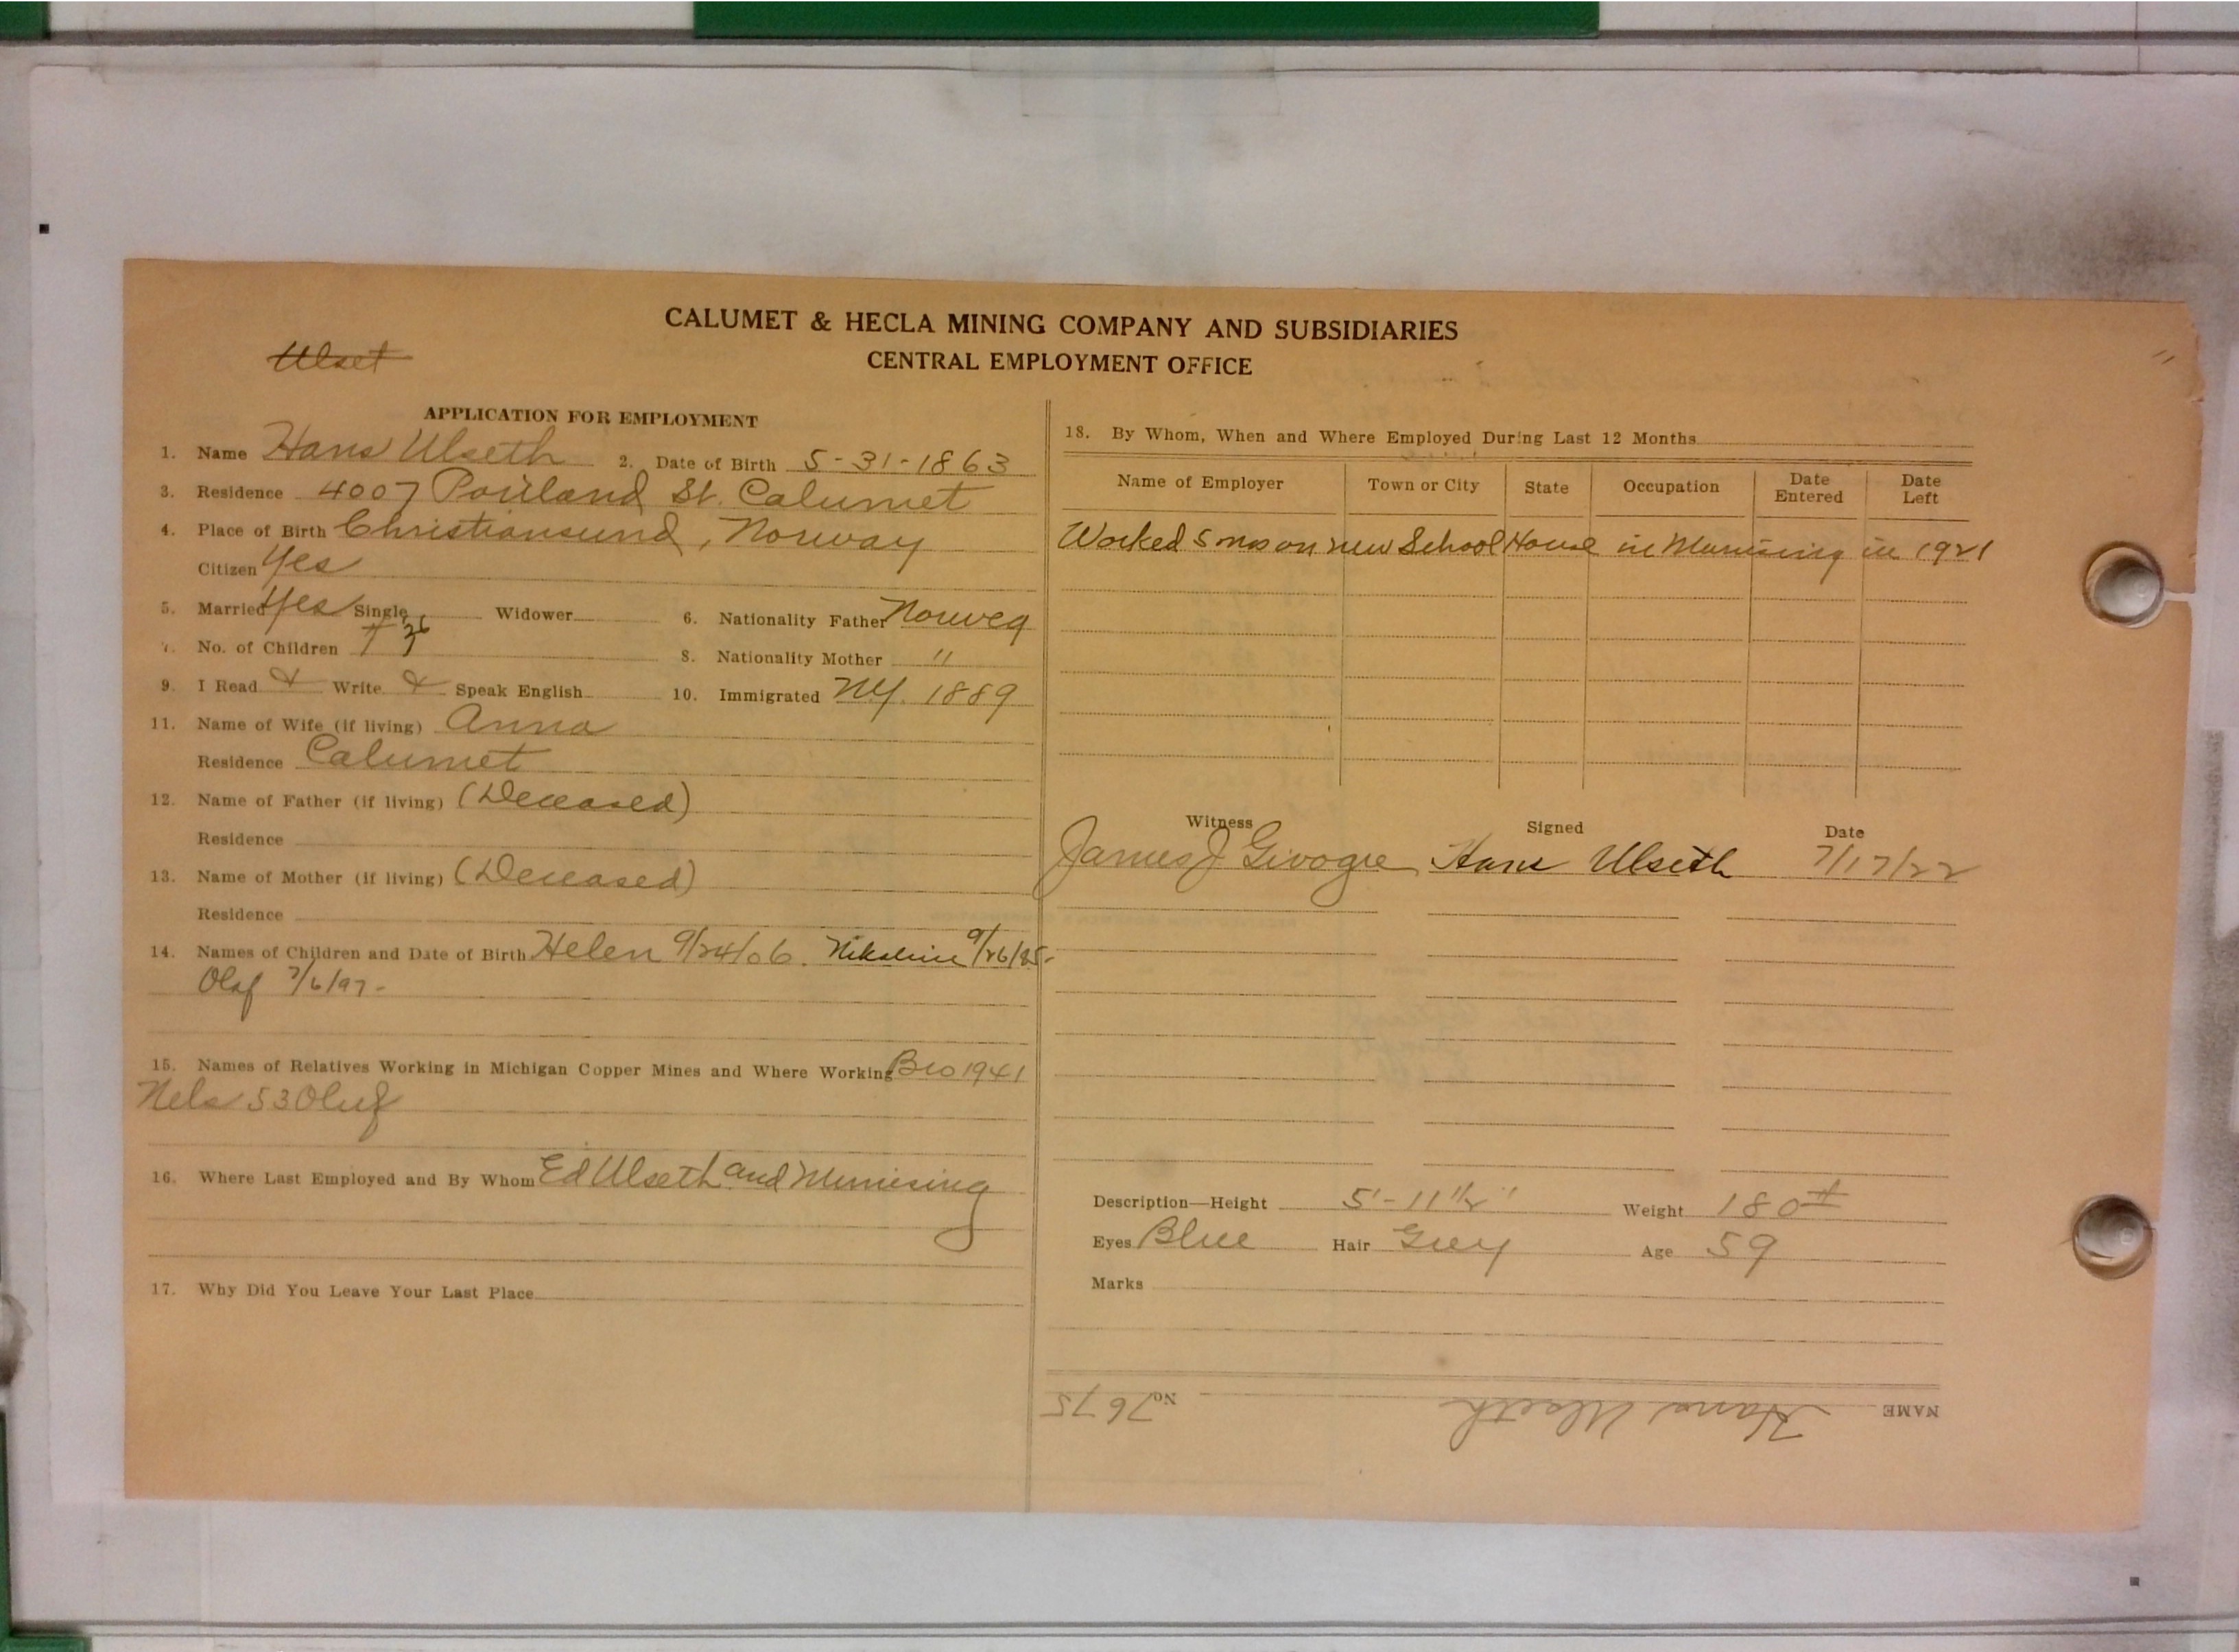 CALUMET & HECLA MINING COMPANY AND SUBSIDIARIES
CENTRAL EMPLOYMENT OFFICE
Ulset
APPLICATION FOR EMPLOYMENT
1. Name Hans Ulseth 2. Date of Birth 5-31-1863
3. Residence 4007 Portland St. Calumet
4. Place of Birth Christiansund, Norway
Citizen Yes
5. Married Yes Single Widower 6. Nationality Father Norweg
No. of Children 8. Nationality Mother "
9. I Read Write Speak English 10. Immigrated NY. 1889
11. Name of Wife (if living) Anna
Residence Calumet
12. Name of Father (if living) (Deceased)
Residence
13. Name of Mother (if living) (Deceased)
Residence
14. Names of Children and Date of Birth Helen 9/24/06. Nikoline 9/26/95-
Olaf 7/6/97-
15. Names of Relatives Working in Michigan Copper Mines and Where Working Bro 1941
Nels 53 Oluf
16. Where Last Employed and By Whom Ed Ulseth and Munising
17. Why Did You Leave Your Last Place
18. By Whom, When and Where Employed During Last 12 Months
Name of Employer Town or City State Occupation Date Entered Date Left
Worked 5 mos on new School House in Munising in 1921
Witness Signed Date
James J Givogre Hans Ulseth 7/17/22
Description—Height 5'-11 1/2" Weight 180#
Eyes Blue Hair Grey Age 59
Marks
NAME Hans Ulseth No. 7675